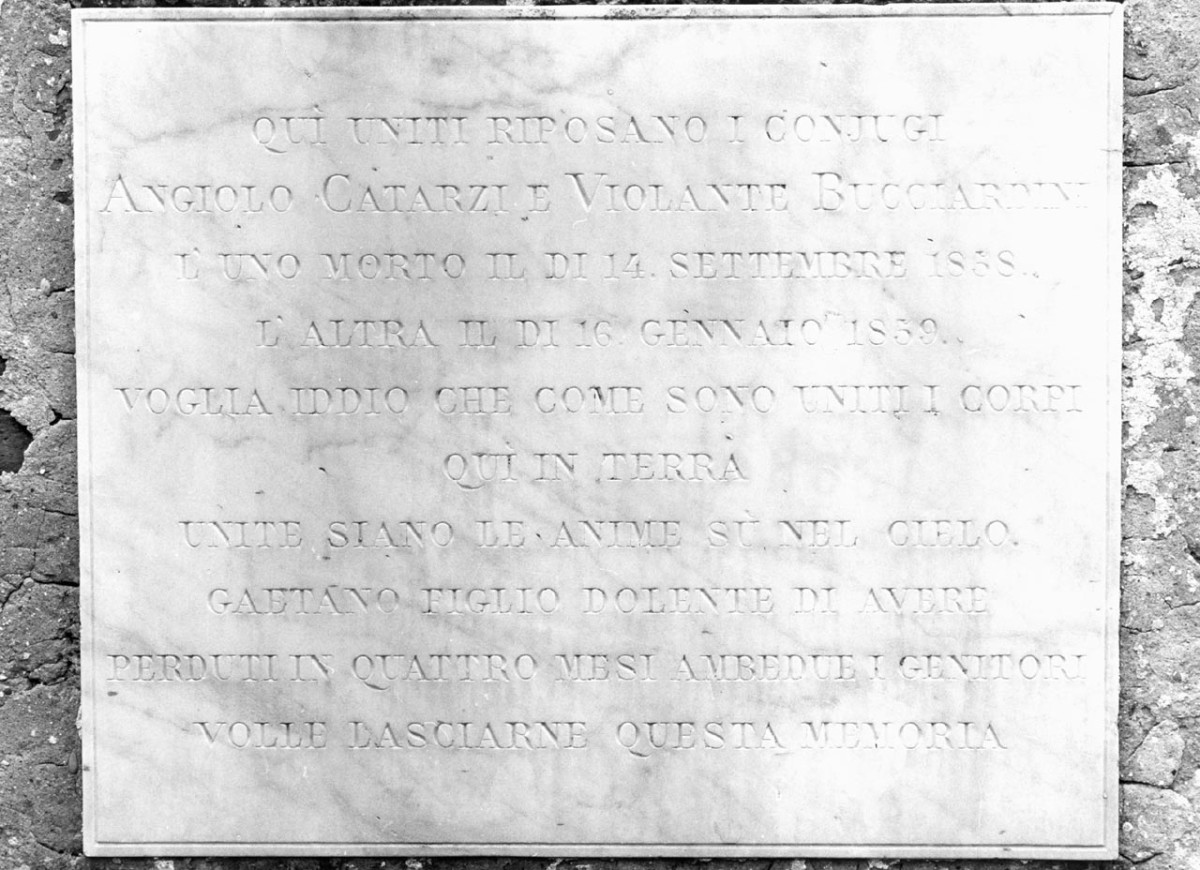 QUÌ UNITI RIPOSANO I CONJUGI
ANGIOLO CATARZI E VIOLANTE BUCCIARDINI
L' UNO MORTO IL DI 14. SETTEMBRE 1858.
L' ALTRA IL DI 16. GENNAIO 1859.
VOGLIA IDDIO CHE COME SONO UNITI I CORPI
QUÌ IN TERRA
UNITE SIANO LE ANIME SÙ NEL CIELO.
GAETANO FIGLIO DOLENTE DI AVERE
PERDUTI IN QUATTRO MESI AMBEDUE I GENITORI
VOLLE LASCIARNE QUESTA MEMORIA